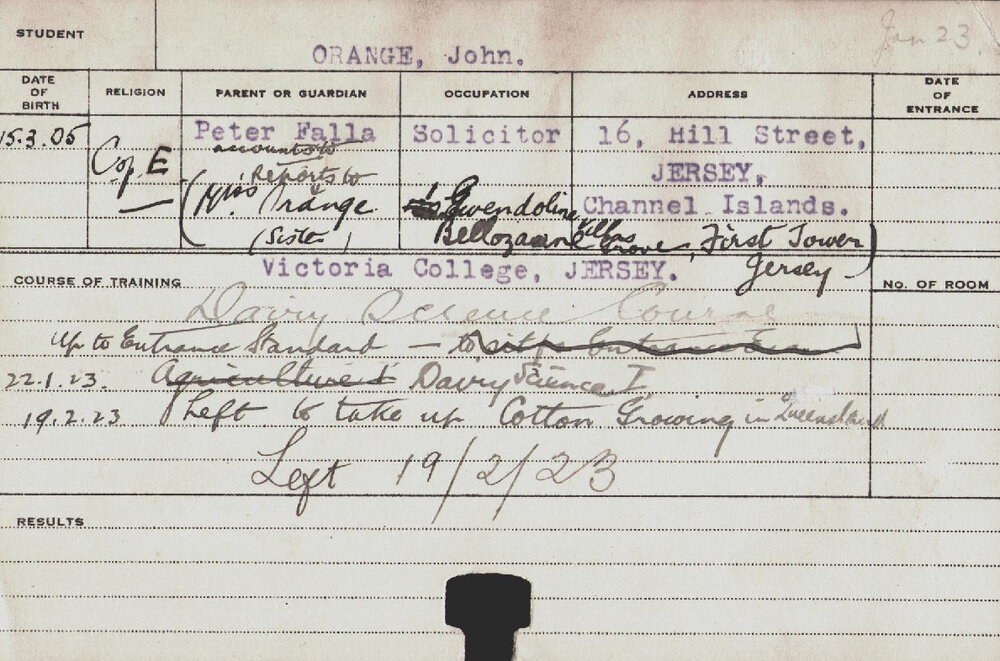 STUDENT
Jan 23.
ORANGE, John.
DATE OF BIRTH
RELIGION
PARENT OR GUARDIAN
OCCUPATION
ADDRESS
DATE OF ENTRANCE
15.3.05
C of E
Peter Falla
Solicitor
16, Hill Street,
accounts to
JERSEY,
Reports to
(Miss Orange
Gwendoline Villas
Channel Islands.
(Sister)
Grove, First Tower
Jersey)
Victoria College, JERSEY.
COURSE OF TRAINING
No. OF ROOM
Dairy Science Course
Up to Entrance Standard — to sit for Entrance Exam
22.1.23. Agriculture I Dairy Science I
19.2.23 Left to take up Cotton Growing in Queensland
Left 19/2/23
RESULTS